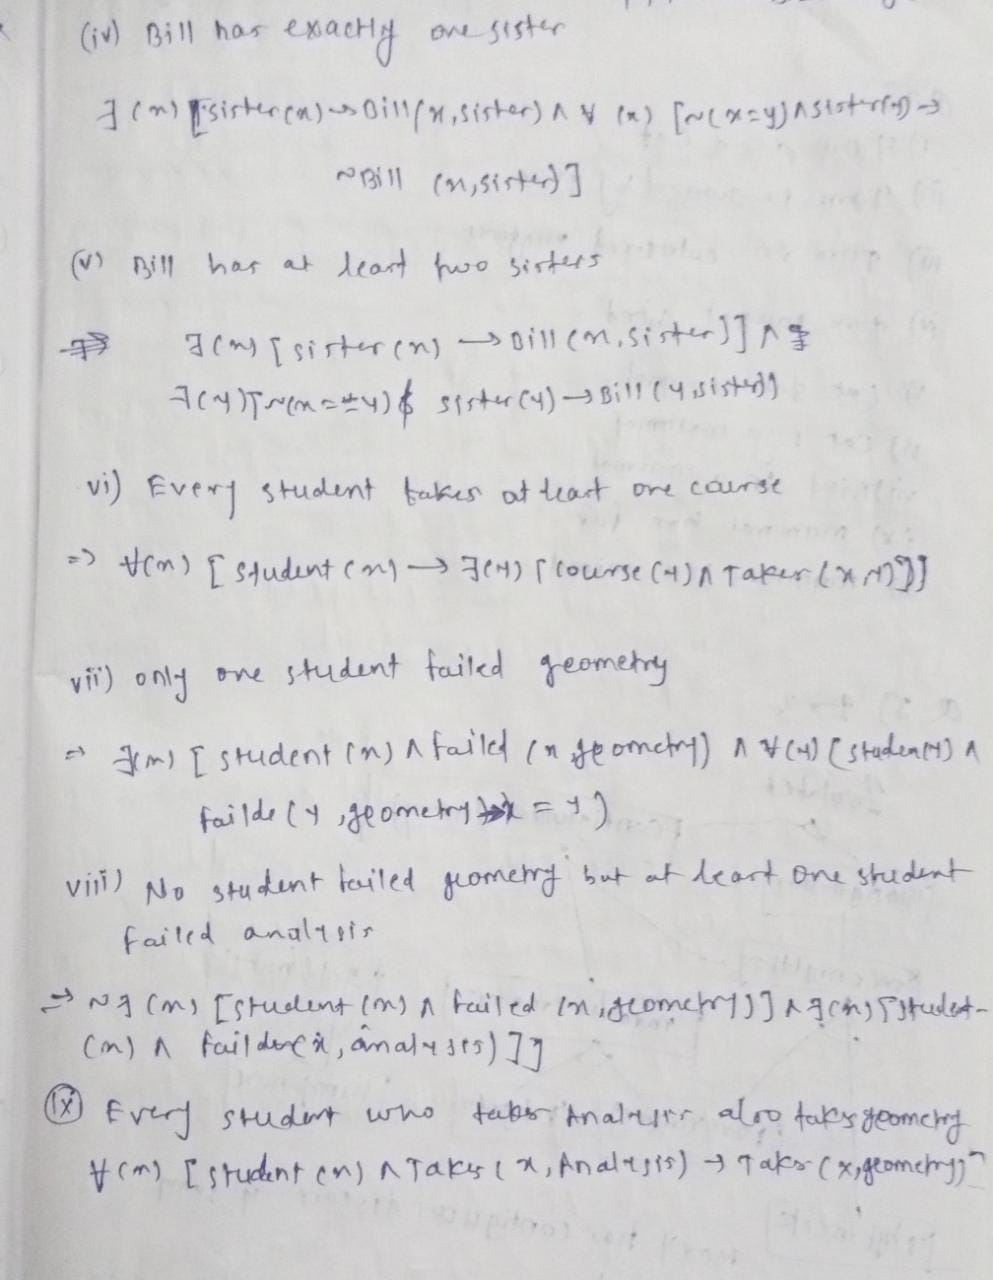 (iv) Bill has exactly one sister
∃(x) [sister(x) → Bill(x,sister) ∧ ∀ (x) [~(x=y) ∧ sister(y) →
~Bill (x,sister)]
(v) Bill has at least two sisters
∃(x) [sister(x) → Bill(x,sister)] ∧
∃(y) [~(x=y) sister(y) → Bill(y,sister)]
vi) Every student takes at least one course
=> ∀(x) [student(x) → ∃(y) [course(y) ∧ Takes(x,y)]]
vii) only one student failed geometry
=> ∃(x) [student(x) ∧ failed (x,geometry) ∧ ∀(y) [studen(y) ∧
failde(y,geometry → x = y)
viii) No student failed geometry but at least one student
failed analysis
=> ~∃(x) [student(x) ∧ failed (x,geometry)] ∧ ∃(x) [student-
(x) ∧ failde(x,analyses)]]
(ix) Every student who takes Analysis also takes geometry
∀(x) [student(x) ∧ Takes(x,Analysis) → Takes(x,geometry)]